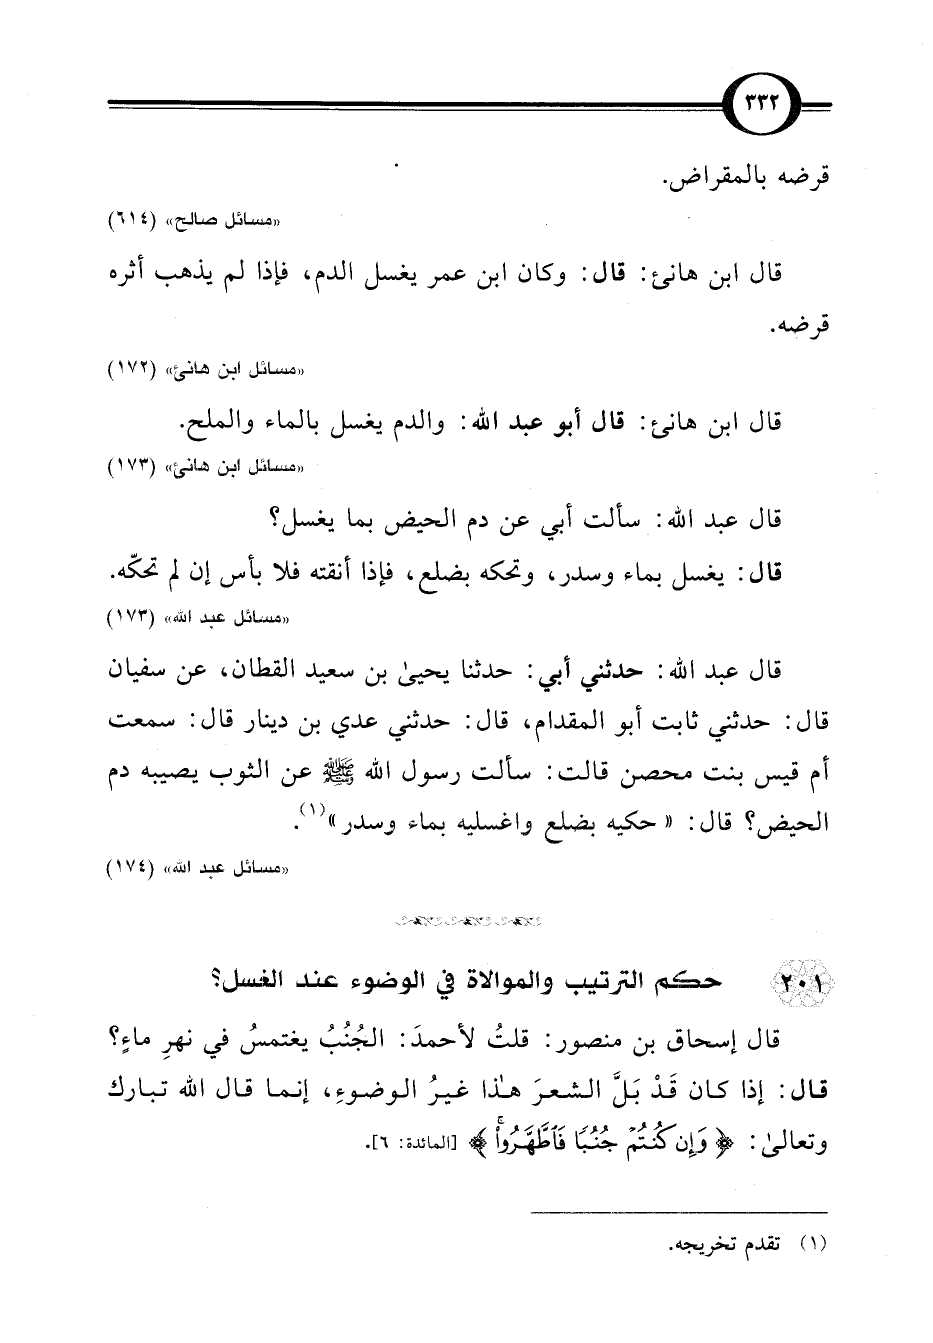 ٣٣٢
قرضه بالمقراض.
«مسائل صالح» (٦١٤)
قال ابن هانئ: قال: وكان ابن عمر يغسل الدم، فإذا لم يذهب أثره
قرضه.
«مسائل ابن هانئ» (١٧٢)
قال ابن هانئ: قال أبو عبد الله: والدم يغسل بالماء والملح.
«مسائل ابن هانئ» (١٧٣)
قال عبد الله: سألت أبي عن دم الحيض بما يغسل؟
قال: يغسل بماء وسدر، وتحكه بضلع، فإذا أنقته فلا بأس إن لم تحكّه.
«مسائل عبد الله» (١٧٣)
قال عبد الله: حدثني أبي: حدثنا يحيىٰ بن سعيد القطان، عن سفيان
قال: حدثني ثابت أبو المقدام، قال: حدثني عدي بن دينار قال: سمعت
أم قيس بنت محصن قالت: سألت رسول الله ﷺ عن الثوب يصيبه دم
الحيض؟ قال: «حكيه بضلع واغسليه بماء وسدر»(١).
«مسائل عبد الله» (١٧٤)
٢٠١ حكم الترتيب والموالاة في الوضوء عند الغسل؟
قال إسحاق بن منصور: قلتُ لأحمدَ: الجُنُبُ يغتمسُ في نهرِ ماءٍ؟
قال: إذا كان قَدْ بَلَّ الشعرَ هـٰذا غيرُ الوضوءِ، إنما قال الله تبارك
وتعالىٰ: ﴿وَإِن كُنتُمْ جُنُبًا فَٱطَّهَّرُوا۟ۚ﴾ [المائدة: ٦].
(١) تقدم تخريجه.